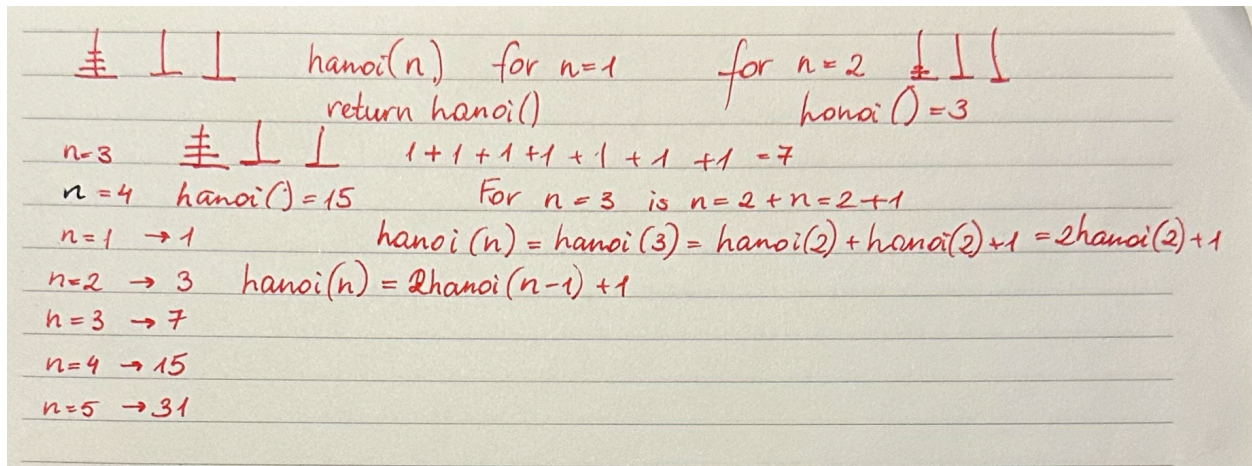 hanoi(n) for n=1 for n=2
return hanoi() honoi()=3
n=3 1+1+1+1+1+1+1=7
n=4 hanoi()=15 For n=3 is n=2+n=2+1
n=1 →1 hanoi(n)=hanoi(3)=hanoi(2)+hanoi(2)+1=2hanoi(2)+1
n=2 → 3 hanoi(n)=2hanoi(n-1)+1
n=3 →7
n=4 →15
n=5 →31